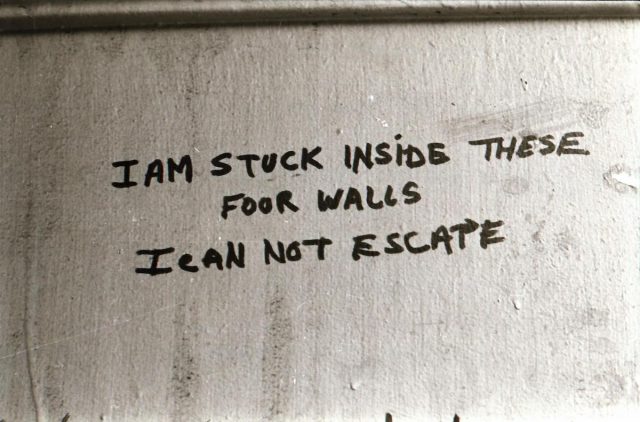 I AM STUCK INSIDE THESE
FOOR WALLS
I CAN NOT ESCAPE